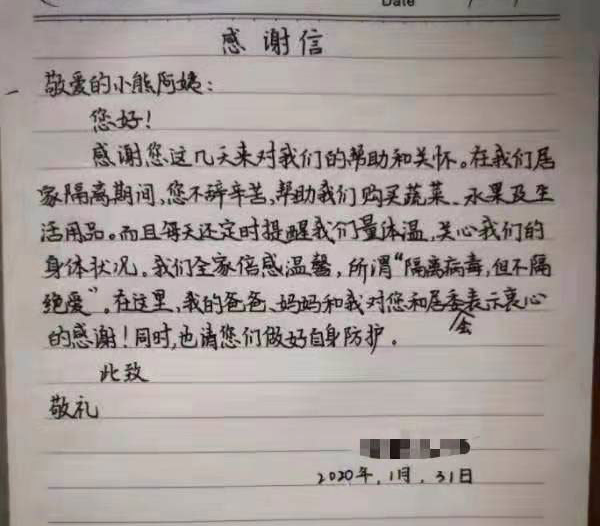 Date / /
感谢信
敬爱的小熊阿姨:
您好!
感谢您这几天来对我们的帮助和关怀。在我们居
家隔离期间,您不辞辛苦,帮助我们购买蔬菜、水果及生
活用品。而且每天还定时提醒我们量体温,关心我们的
身体状况。我们全家倍感温馨,所谓“隔离病毒,但不隔
绝爱”。在这里,我的爸爸、妈妈和我对您和居委会表示衷心
的感谢!同时,也请您们做好自身防护。
此致
敬礼
2020年,1月,31日